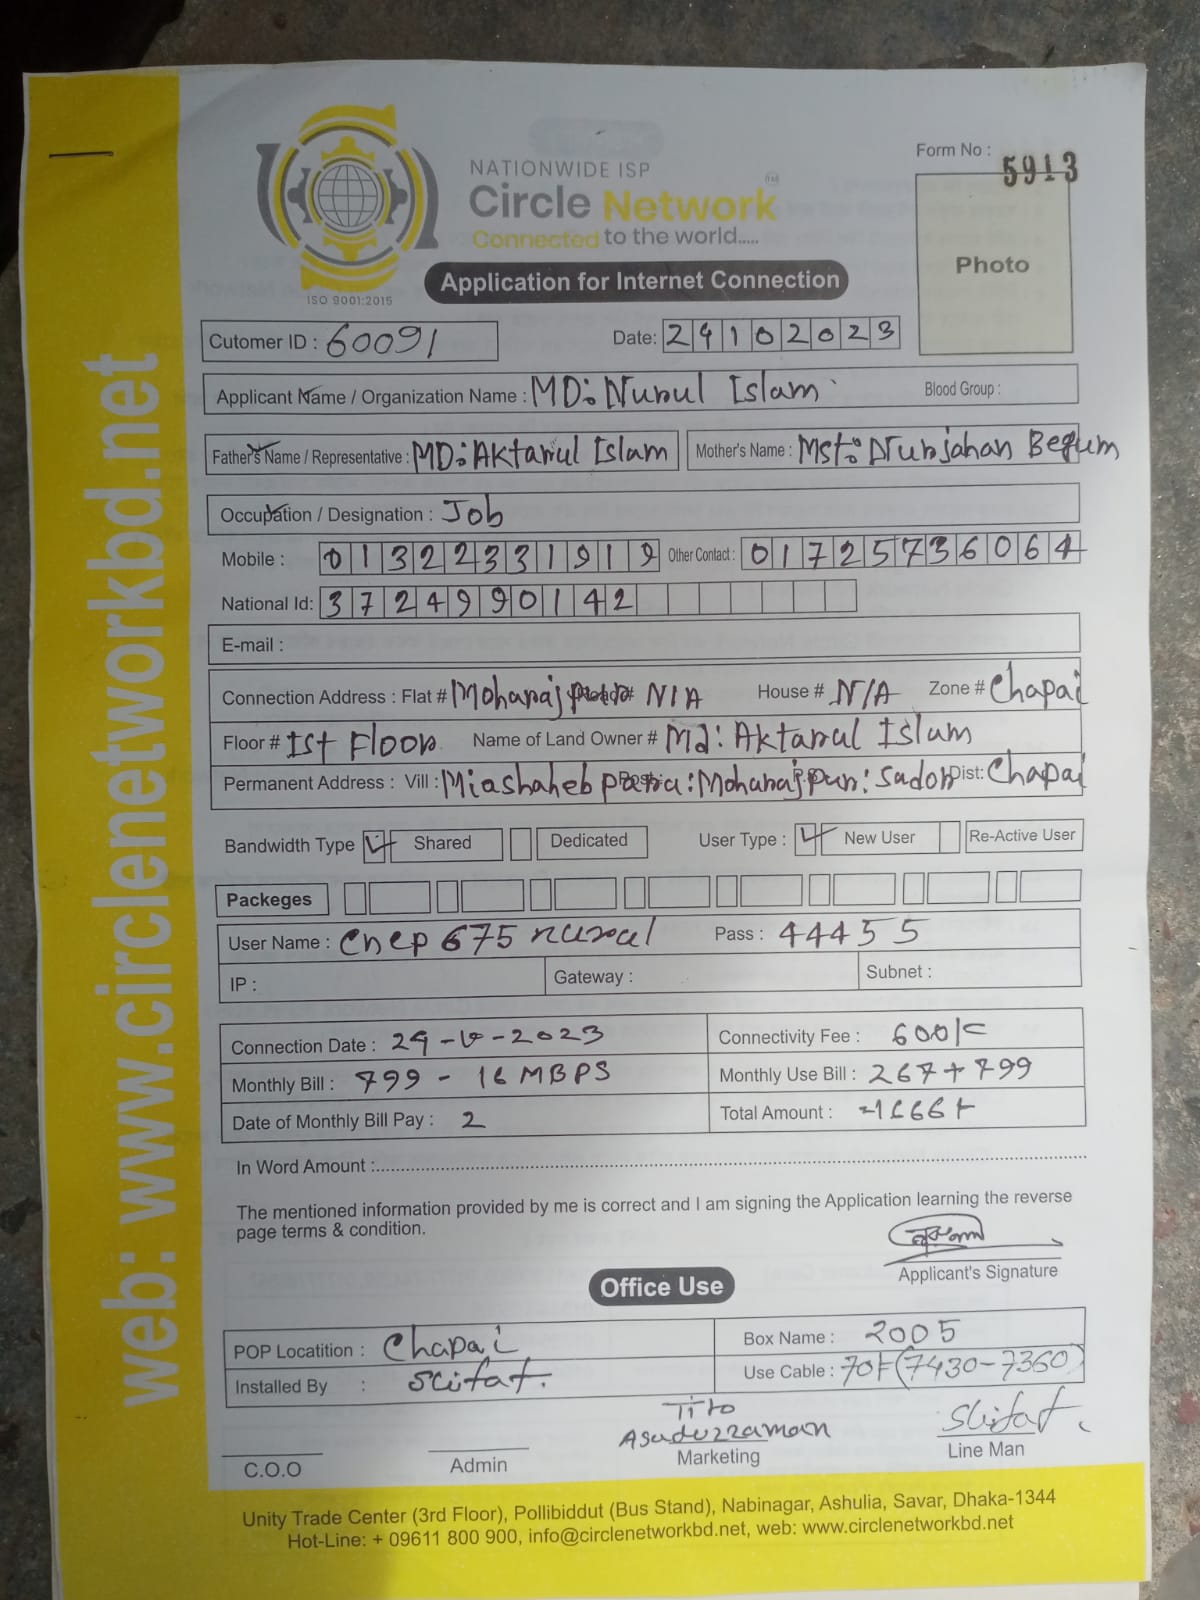 NATIONWIDE ISP
Circle Network
Connected to the world.....
ISO 9001:2015
Form No : 5913
Photo
Application for Internet Connection
Cutomer ID : 60091
Date: 24102023
Applicant Name / Organization Name : MD: Nurul Islam
Blood Group :
Father's Name / Representative : MD: Aktarul Islam
Mother's Name : Mst: Nurjahan Begum
Occupation / Designation : Job
Mobile : 01322331919
Other Contact : 01725736064
National Id: 3724990142
E-mail :
Connection Address : Flat # Moharajpur Road# N/A House # N/A Zone # Chapai
Floor # 1st Floor Name of Land Owner # Md: Aktarul Islam
Permanent Address : Vill : Miashaheb para: Moharajpur: Sador Dist: Chapai
Bandwidth Type Shared Dedicated User Type : New User Re-Active User
Packeges
User Name : 675 nurul Pass : 44455
IP : Gateway : Subnet :
Connection Date : 24-10-2023 Connectivity Fee : 600/=
Monthly Bill : 799 - 16 MBPS Monthly Use Bill : 267+799
Date of Monthly Bill Pay : 2 Total Amount : 1666
In Word Amount :
The mentioned information provided by me is correct and I am signing the Application learning the reverse
page terms & condition.
Applicant's Signature
Office Use
POP Locatition : Chapai Box Name : 2005
Installed By : Sifat. Use Cable : 70F(7430-7360)
Tito
Asaduzzaman
Sifat
C.O.O Admin Marketing Line Man
Unity Trade Center (3rd Floor), Pollibiddut (Bus Stand), Nabinagar, Ashulia, Savar, Dhaka-1344
Hot-Line: + 09611 800 900, info@circlenetworkbd.net, web: www.circlenetworkbd.net
web: www.circlenetworkbd.net